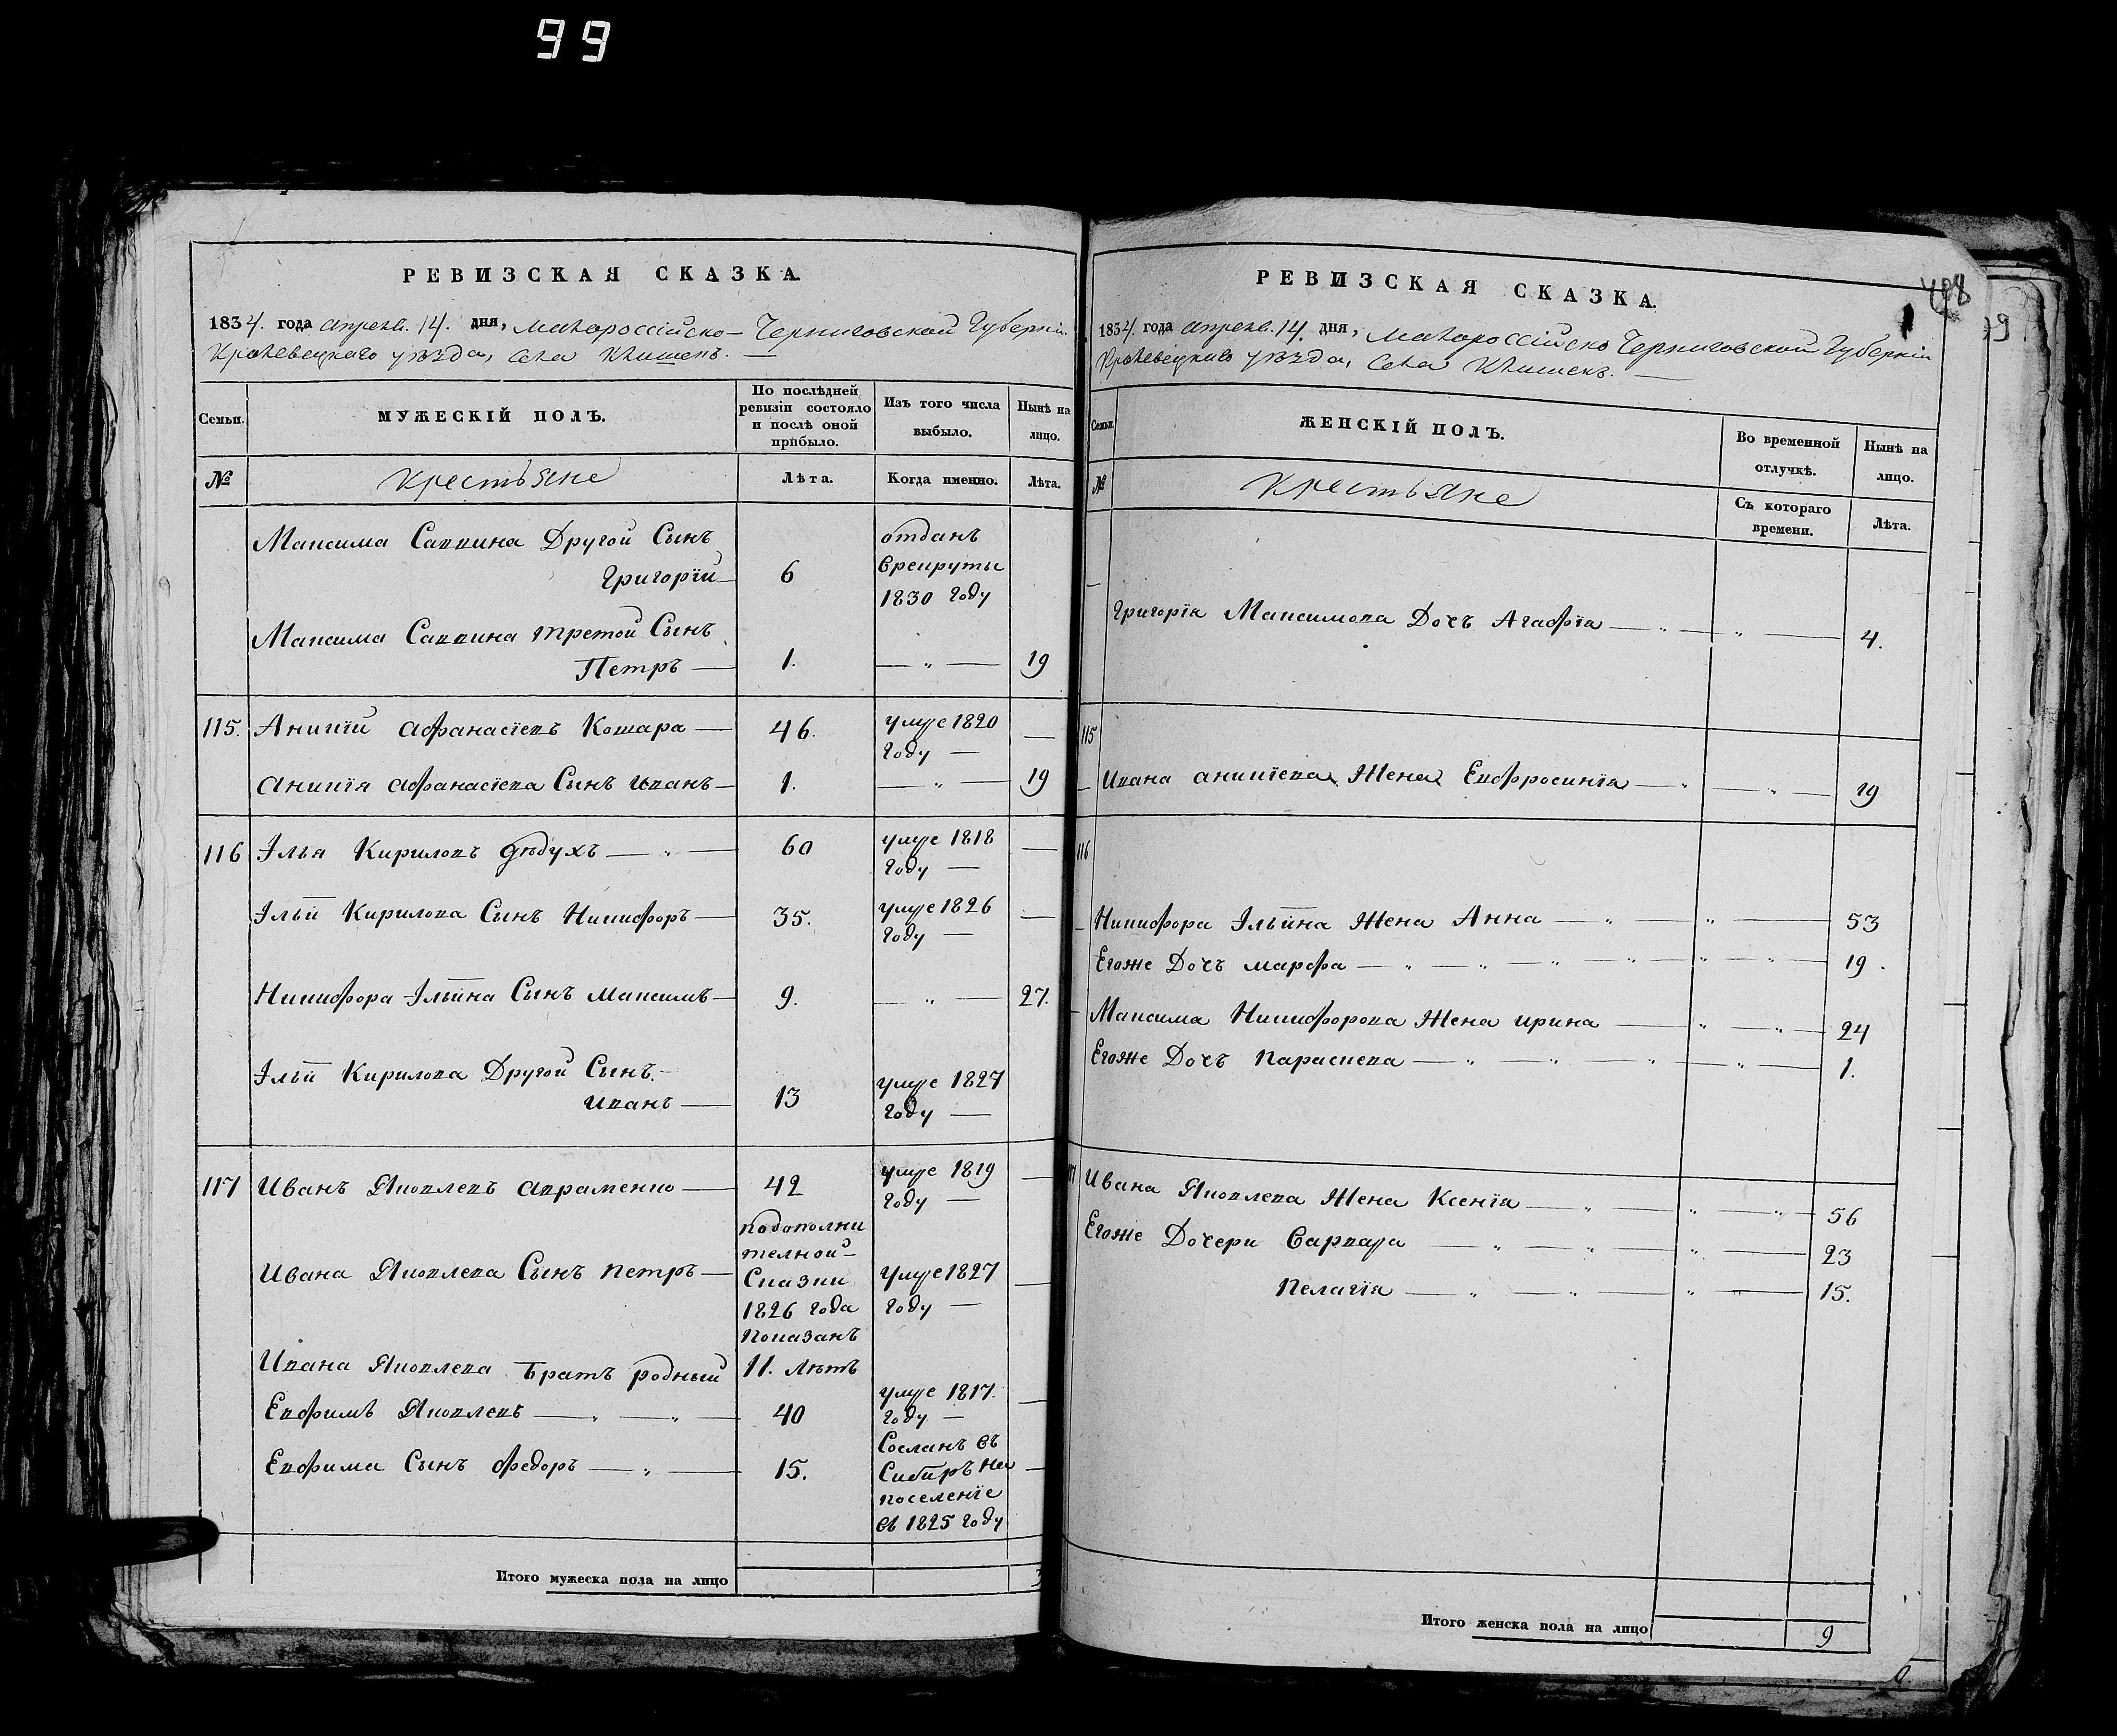 99
РЕВИЗСКАЯ СКАЗКА.
1834. года апреля. 14. дня, Малороссійско-Черниговской Губерніи
Кролевецкаго уѣзда, Села Клишекъ. —
Семьи.
МУЖЕСКІЙ ПОЛЪ.
По послѣдней ревизіи состояло и послѣ оной прибыло.
Изъ того числа выбыло.
Нынѣ на лицо.
№
Крестьяне
Лѣта.
Когда именно.
Лѣта.
Максима Саввина Другой Сынъ
Григорій — 6 отданъ
врекруты
1830 году
Максима Саввина третой Сынъ
Петръ — 1. — „ — 19
115. Аникій Афанасіевъ Кошара — 46. умре 1820 —
году —
Аникія Афанасіева Сынъ Иванъ — 1. — „ — 19
116 Ілья Кириловъ Дѣдухъ — „ — 60 умре 1818 —
году —
Ільи Кирилова Сынъ Никифоръ — 35. умре 1826 —
году —
Никифора Ільина Сынъ Максимъ — 9. — „ — 27.
Ільи Кирилова Другой Сынъ. —
Иванъ — 13 умре 1827
году —
117 Иванъ Яковлевъ Авраменко — 42 умре 1819 —
году —
Ивана Яковлева Сынъ Петръ —
подополни
телной
Сказки
1826 года
показанъ
11. лѣтъ
умре 1827 —
году —
Ивана Яковлева Братъ родный
Евфимъ Яковлевъ — „ — „ — 40 умре 1817. —
году —
Евфима Сынъ Федоръ — „ — 15. Сосланъ въ
Сибиръ на —
поселеніе
въ 1825 году
Итого мужеска пола на лицо 3
408
РЕВИЗСКАЯ СКАЗКА.
1834. года апреля. 14. дня, Малороссійско Черниговской Губерніи
Кролевецкаго уѣзда, Села Клишекъ. —
Семьи.
ЖЕНСКІЙ ПОЛЪ.
Во временной отлучкѣ.
Нынѣ на лицо.
№
Крестьяне
Съ котораго времени.
Лѣта.
Григорія Максимова Дочъ Агафія — „ — „ — 4.
115
Ивана Аникіева Жена Евфросинія — „ — „ — 19
116
Никифора Ільина Жена Анна — „ — „ — 53
Егоже Дочъ Марфа — „ — „ — „ — „ — „ — „ — 19.
Максима Никифорова Жена Ирина — „ — „ — 24
Егоже Дочъ Параскева — „ — „ — „ — „ — 1.
117 Ивана Яковлева Жена Ксенія — „ — „ — „ — 56
Егоже Дочери Варвара — „ — „ — „ — 23
Пелагія — „ — „ — „ — 15.
Итого женска пола на лицо 9